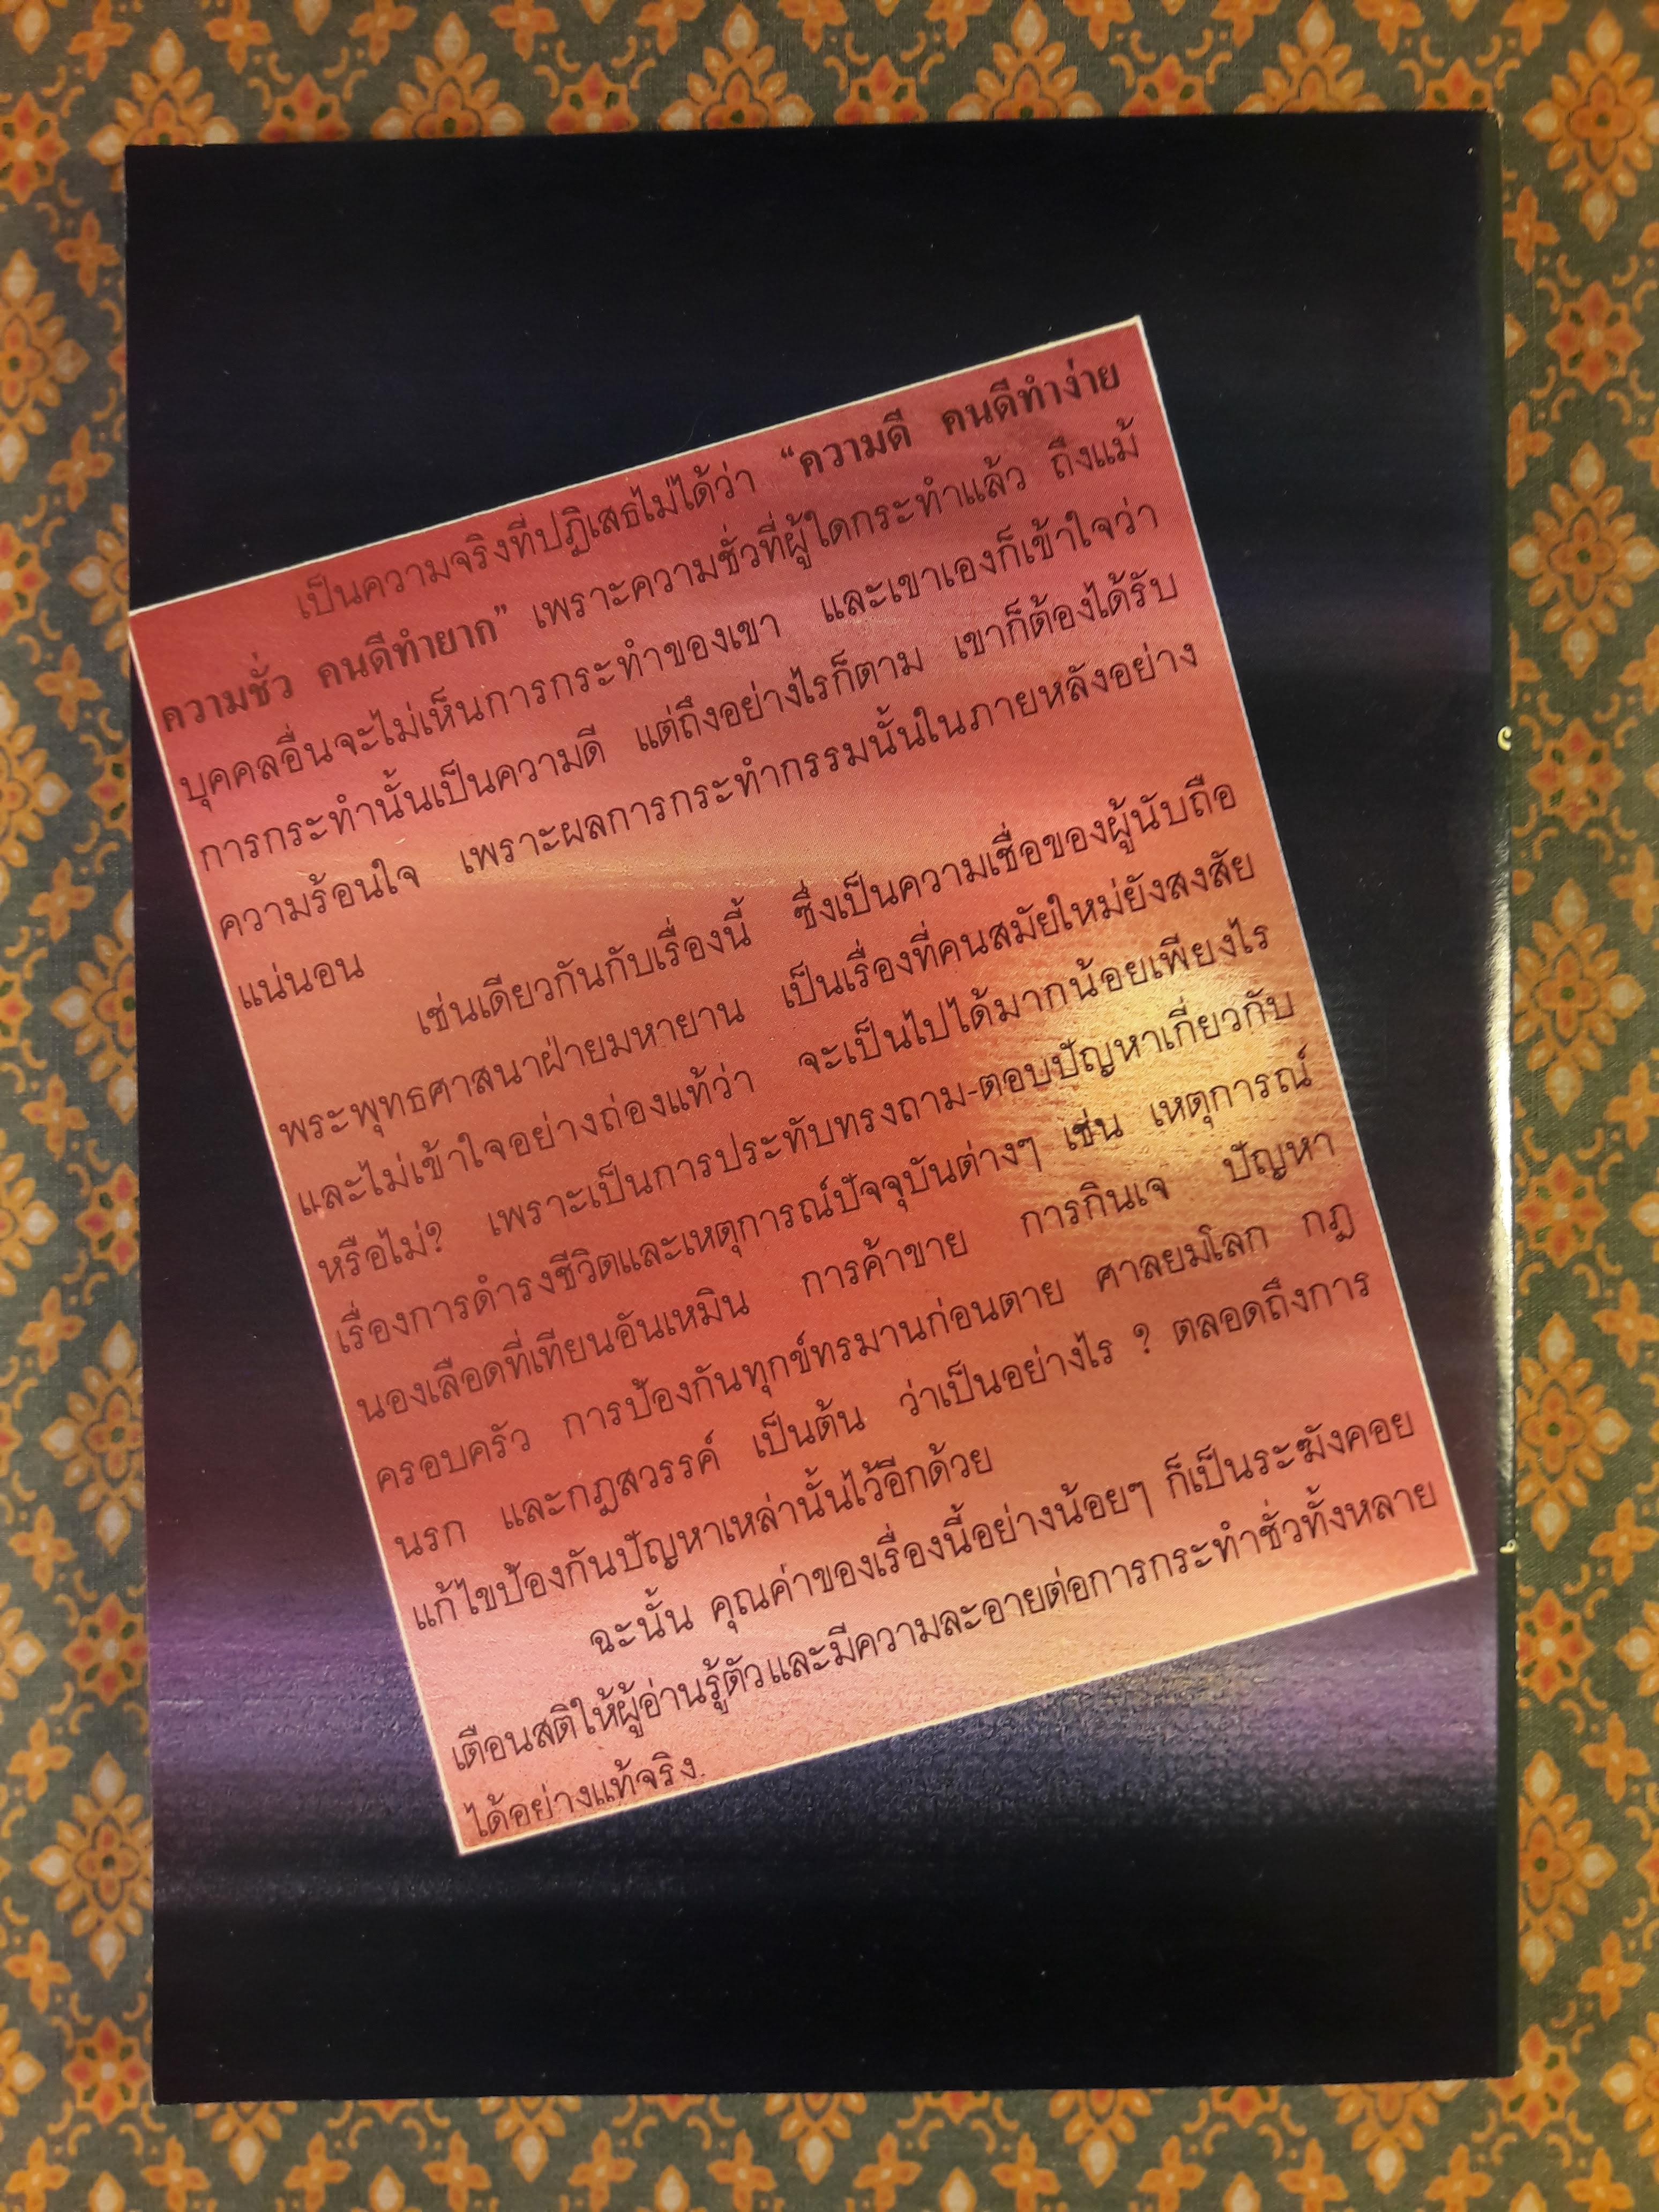 เป็นความจริงที่ปฏิเสธไม่ได้ว่า “ความดี คนดีทำง่าย
ความชั่ว คนดีทำยาก” เพราะความชั่วที่ผู้ใดกระทำแล้ว ถึงแม้
บุคคลอื่นจะไม่เห็นการกระทำของเขา และเขาเองก็เข้าใจว่า
การกระทำนั้นเป็นความดี แต่ถึงอย่างไรก็ตาม เขาก็ต้องได้รับ
ความร้อนใจ เพราะผลการกระทำกรรมนั้นในภายหลังอย่าง
แน่นอน
เช่นเดียวกันกับเรื่องนี้ ซึ่งเป็นความเชื่อของผู้นับถือ
พระพุทธศาสนาฝ่ายมหายาน เป็นเรื่องที่คนสมัยใหม่ยังสงสัย
และไม่เข้าใจอย่างถ่องแท้ว่า จะเป็นไปได้มากน้อยเพียงไร
หรือไม่? เพราะเป็นการประทับทรงถาม-ตอบปัญหาเกี่ยวกับ
เรื่องการดำรงชีวิตและเหตุการณ์ปัจจุบันต่างๆ เช่น เหตุการณ์
นองเลือดที่เทียนอันเหมิน การค้าขาย การกินเจ ปัญหา
ครอบครัว การป้องกันทุกข์ทรมานก่อนตาย ศาลยมโลก กฎ
นรก และกฎสวรรค์ เป็นต้น ว่าเป็นอย่างไร ? ตลอดถึงการ
แก้ไขป้องกันปัญหาเหล่านั้นไว้อีกด้วย
ฉะนั้น คุณค่าของเรื่องนี้อย่างน้อยๆ ก็เป็นระฆังคอย
เตือนสติให้ผู้อ่านรู้ตัวและมีความละอายต่อการกระทำชั่วทั้งหลาย
ได้อย่างแท้จริง.